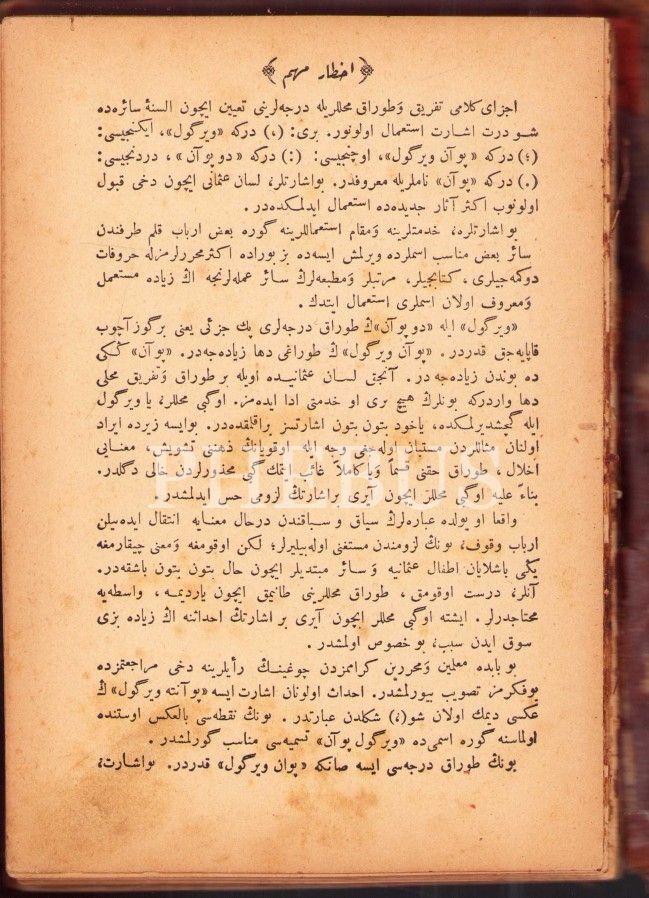 ﴾ اخطار مهم ﴿
اجزای کلامی تفریق وَطوراق محللریله درجه‌لرینی تعیین ایچون السنهٔ سائره‌ده
شو درت اشارت استعمال اولونور. بری: (،) درکه «ویرگول»، ایکنجیسی:
(؛) درکه «پوآن ویرگول»، اوچنجیسی: (:) درکه «دو پوآن»، دردنجیسی:
(.) درکه «پوآن» ناملریله معروفدر. بواشارتلر، لسان عثمانی ایچون دخی قبول
اولونوب اکثر آثار جدیده‌ده استعمال ایدلمکده‌در.
بو اشارتلره، خدمتلرینه وَمقام استعماللرینه گوره بعض ارباب قلم طرفندن
سائر بعض مناسب اسملرده ویرلمش ایسه‌ده بز بوراده اکثر محررلرمزله حروفات
دوکمه‌جیلری، کتابجیلر، مرتبلر وَمطبعه‌لرڭ سائر عمله‌لرنجه اڭ زیاده مستعمل
وَمعروف اولان اسملری استعمال ایتدك.
«ویرگول» ایله «دو پوآن»ڭ طوراق درجه‌لری پك جزئی یعنی برگوز آچوب
قاپایه‌جق قدردر. «پوآن ویرگول»ڭ طوراغی دها زیاده‌جه‌در. «پوآن» ڭکی
ده بوندن زیاده‌جه در. آنجق لسان عثمانیده اویله بر طوراق وَتفریق محلی
دها واردرکه بونلرڭ هیچ بری او خدمتی ادا ایده‌مز. اوگبی محللر، یا ویرگول
ایله گچشدیرلمکده، یاخود بتون بتون اشارتسز براقلقده‌در. بوایسه زیرده ایراد
اولنان مثاللردن مستبان اوله‌جغی وجه ایله اوقویانڭ ذهنی تشویش، معنایی
اخلال، طوراق حقنی قسماً وَیا کاملاً غائب ایتمك گبی محذورلردن خالی دگلدر.
بناءً علیه اوگبی محللر ایچون آیری بر اشارتڭ لزومی حس ایدلمشدر.
واقعا او یولده عباره‌لرڭ سیاق و سباقندن درحال معنایه انتقال ایده‌بیلن
ارباب وقوف، بونڭ لزومندن مستغنی اوله‌بیلیرلر؛ لکن اوقومغه وَمعنی چیقارمغه
یڭی باشلایان اطفال عثمانیه وَسائر مبتدیلر ایچون حال بتون بتون باشقه‌در.
آنلر، درست اوقومق، طوراق محللرینی طانیمق ایچون یاردیمه، واسطه‌یه
محتاجدرلر. ایشته اوگبی محللر ایچون آیری بر اشارتڭ احداثنه اڭ زیاده بزی
سوق ایدن سبب، بو خصوص اولمشدر.
بو بابده معلمین وَمحررین کراممزدن چوغینڭ رأیلرینه دخی مراجعتمزده
بوفکرمز تصویب بیورلمشدر. احداث اولونان اشارت ایسه «پوآنته ویرگول»ڭ
عکسی دیمك اولان شو(،) شکلدن عبارتدر. بونڭ نقطه‌سی بالعکس اوستنده
اولماسنه گوره اسمی‌ده «ویرگول پوآن» تسمیه‌سی مناسب گورلمشدر.
بونڭ طوراق درجه‌سی ایسه صانکه «پوان ویرگول» قدردر. بواشارت،
PHEBUS